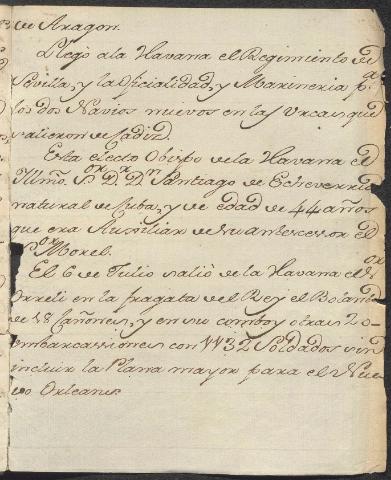 de Aragon.
Llegó ala Havana el Regimiento de
Sevilla, y la Oficialidad, y Marineria pa.
los dos Navios nuevos en las Urcas que
salieron de Cadiz
Esta electo Obispo de la Havana el
Illmo. Sor. Dr. Dn. Santiago de Echeverria
natural de Cuba, y de edad de 44 años
que era Auxiliar de su antecessor el
Sor. Morel.
El 6 de Julio salió de la Havana el Sor.
Orreli en la fragata del Rey el Boland
de 18 Cañones, y en su comboy otras 20
embarcassiones con 1132 Soldados sin
incluir la Plana mayor para el Nue
vo Orleans